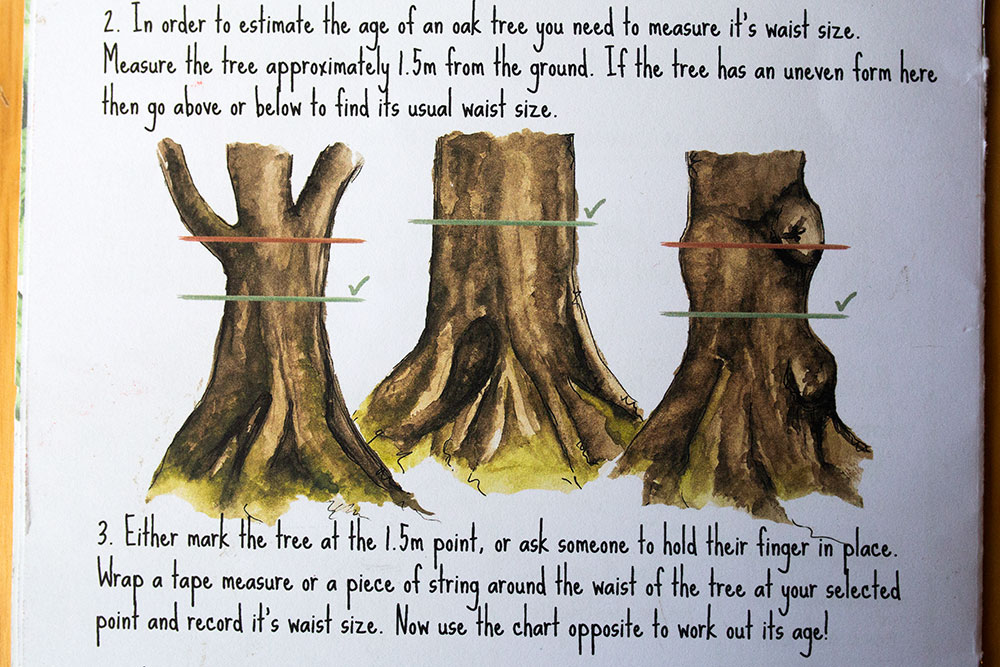 2. In order to estimate the age of an oak tree you need to measure it's waist size.
Measure the tree approximately 1.5m from the ground. If the tree has an uneven form here
then go above or below to find its usual waist size.
3. Either mark the tree at the 1.5m point, or ask someone to hold their finger in place.
Wrap a tape measure or a piece of string around the waist of the tree at your selected
point and record it's waist size. Now use the chart opposite to work out its age!